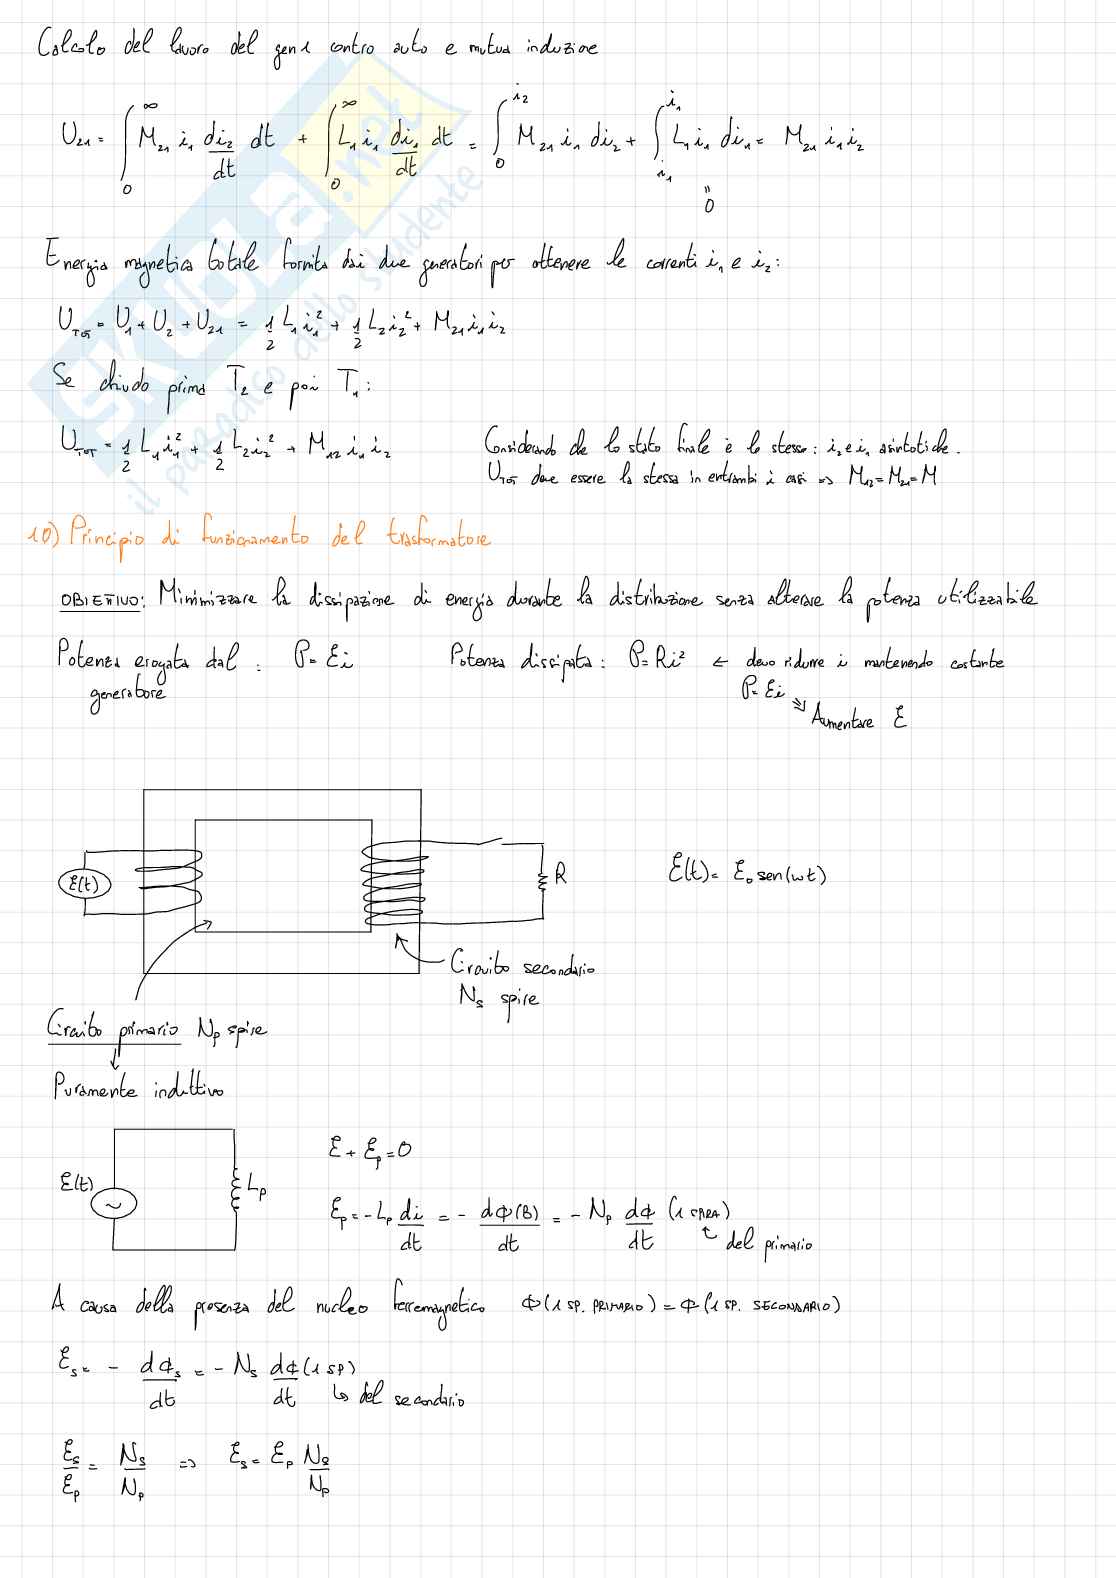 Calcolo del lavoro del gen 1 contro auto e mutua induzione
U₂₁ = ∫₀^∞ M₂₁ i₁ di₂/dt dt + ∫₀^∞ L₁ i₁ di₁/dt dt = ∫₀^i₂ M₂₁ i₁ di₂ + ∫_i₁^i₁ L₁ i₁ di₁ = M₂₁ i₁ i₂
"
0
Energia magnetica totale fornita dai due generatori per ottenere le correnti i₁ e i₂:
U_TOT = U₁ + U₂ + U₂₁ = 1/2 L₁ i₁² + 1/2 L₂ i₂² + M₂₁ i₁ i₂
Se chiudo prima T₂ e poi T₁:
U_TOT = 1/2 L₁ i₁² + 1/2 L₂ i₂² + M₁₂ i₁ i₂
Considerando che lo stato finale è lo stesso: i₂ e i₁ asintotiche.
U_TOT deve essere la stessa in entrambi i casi ⇒ M₁₂ = M₂₁ = M
10) Principio di funzionamento del trasformatore
OBIETTIVO: Minimizzare la dissipazione di energia durante la distribuzione senza alterare la potenza utilizzabile
Potenza erogata dal : P = Ei
generatore
Potenza dissipata: P = Ri² ← devo ridurre i mantenendo costante
P = Ei
⇒ Aumentare E
E(t)
R
E(t) = E₀ sen(ωt)
Circuito secondario
Nₛ spire
Circuito primario Nₚ spire
↓
Puramente induttivo
E(t)
~
Lₚ
E + Eₚ = 0
Eₚ = - Lₚ di/dt = - dΦ(B)/dt = - Nₚ dΦ/dt (1 SPIRA)
del primario
A causa della presenza del nucleo ferromagnetico Φ(1 SP. PRIMARIO) = Φ(1 SP. SECONDARIO)
Eₛ = - dΦₛ/dt = - Nₛ dΦ(1 SP)/dt
↳ del secondario
Eₛ/Eₚ = Nₛ/Nₚ ⇒ Eₛ = Eₚ Nₛ/Nₚ
SKUOLA.net
il paradiso dello studente